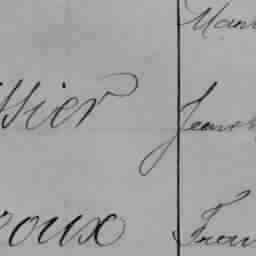 Mari
ssier Jean
roux Fran